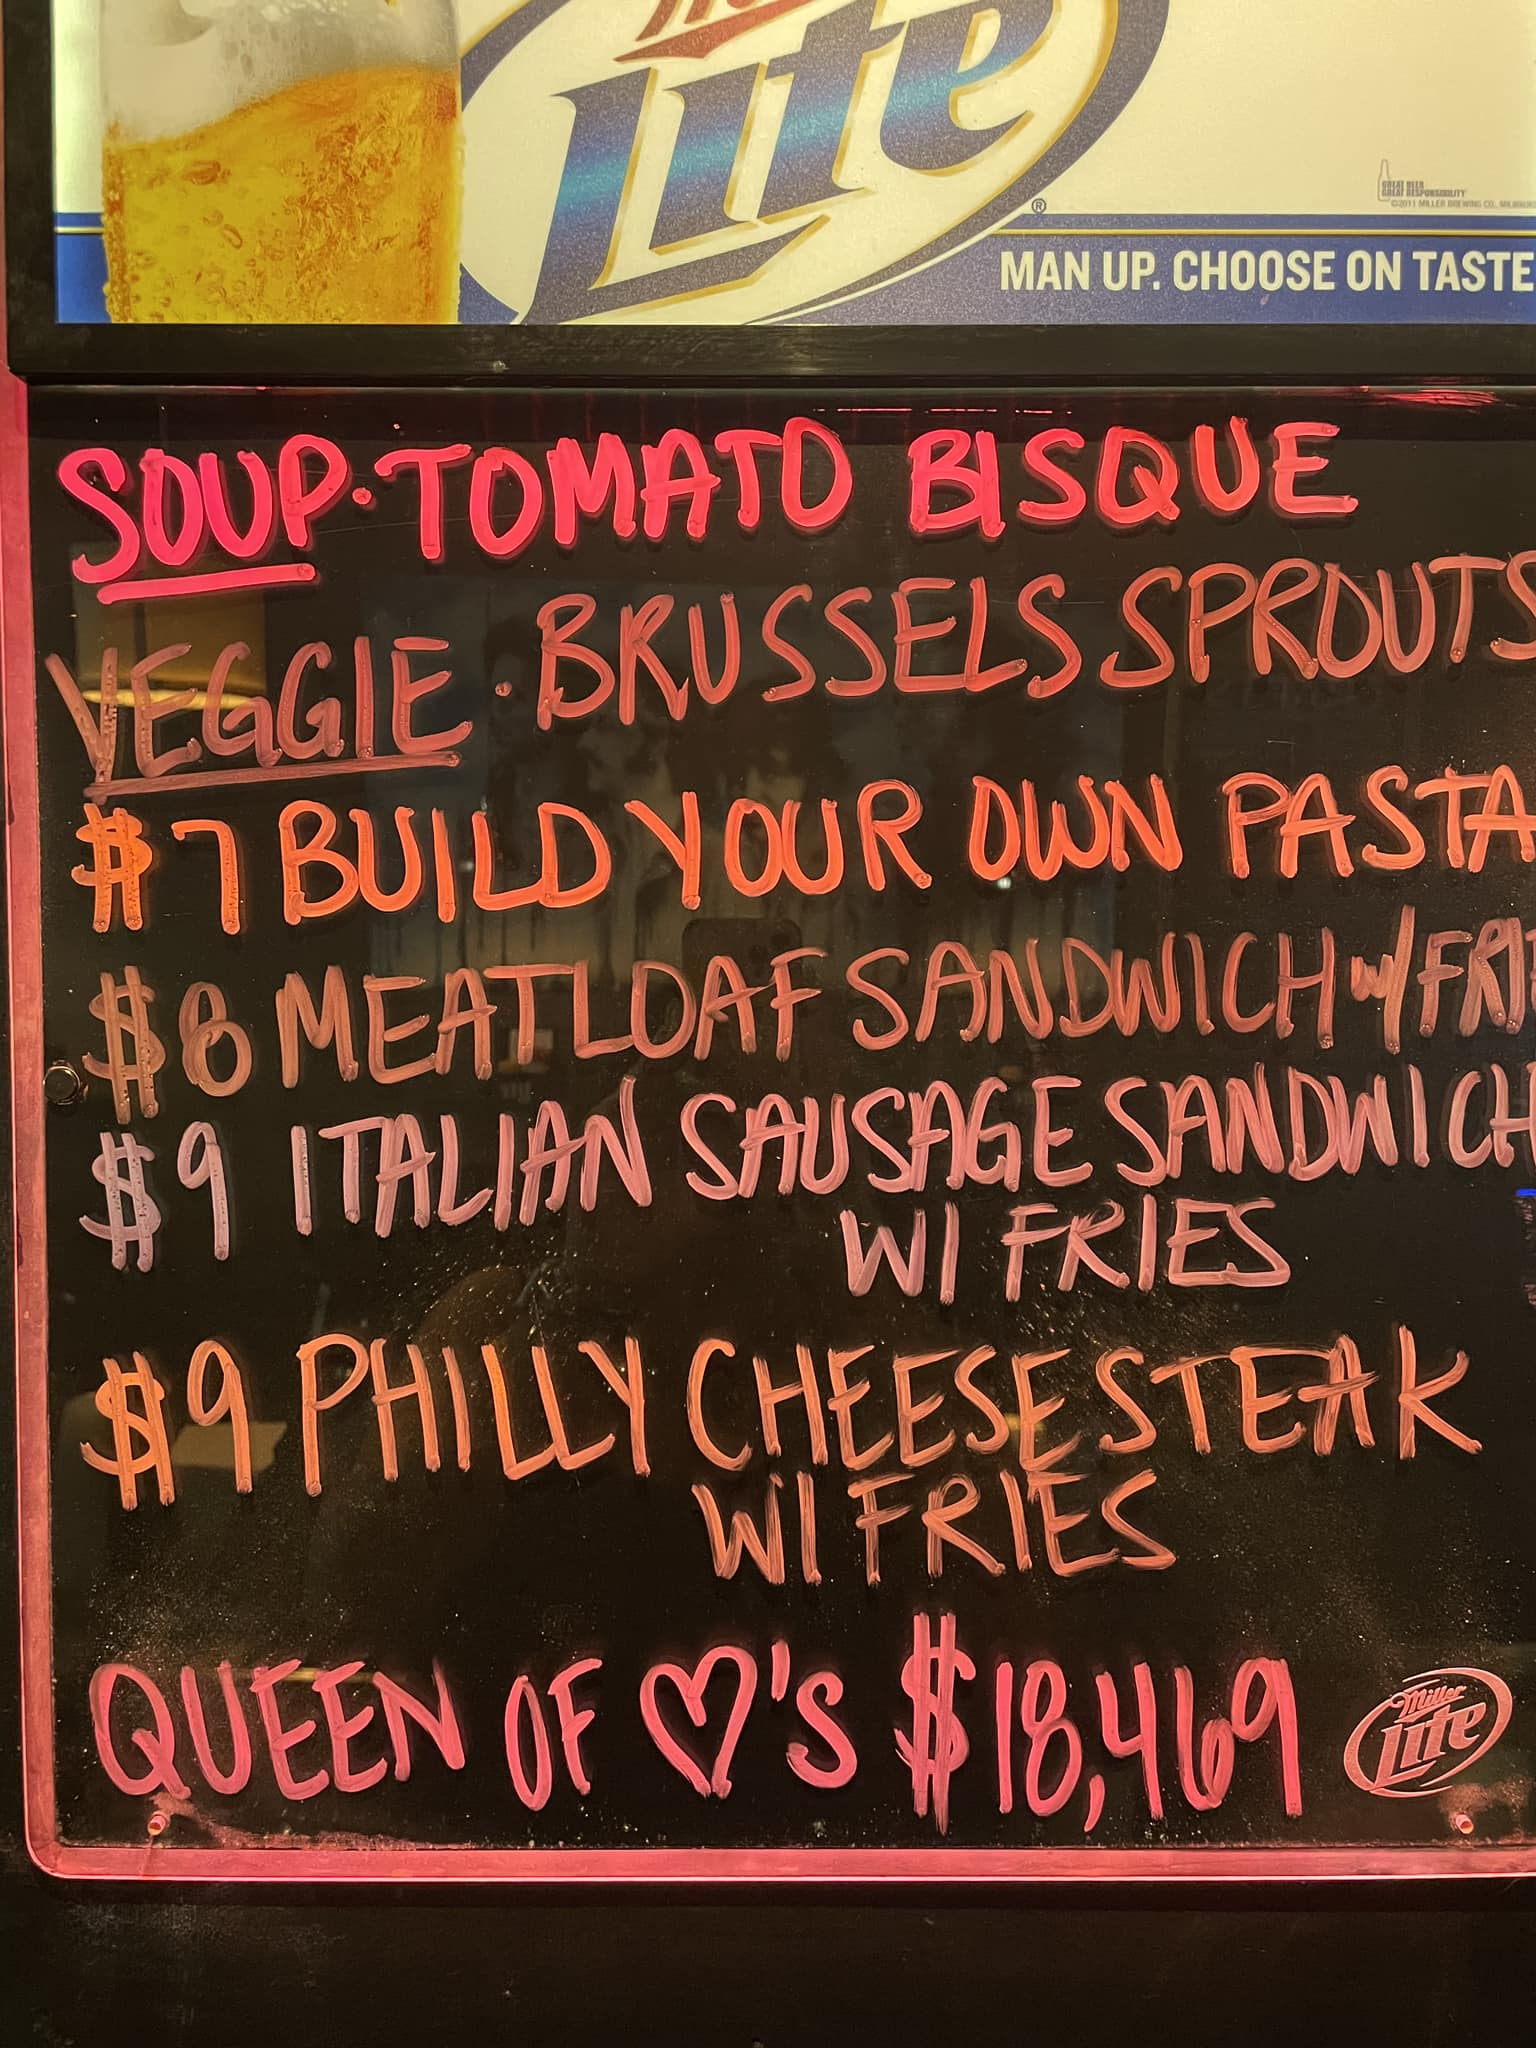 Lite
®
GREAT BEER
GREAT RESPONSIBILITY
©2011 MILLER BREWING CO., MILWAUK
MAN UP. CHOOSE ON TASTE
SOUP·TOMATO BISQUE
VEGGIE·BRUSSELS SPROUTS
$7 BUILD YOUR OWN PASTA
$8 MEATLOAF SANDWICH w/FRI
$9 ITALIAN SAUSAGE SANDWICH
W/ FRIES
$9 PHILLY CHEESESTEAK
W/ FRIES
QUEEN OF ♡'S $18,469
Miller
Lite